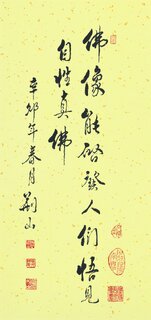 佛像能啓發人們悟見
自性真佛
辛卯年春月荊山